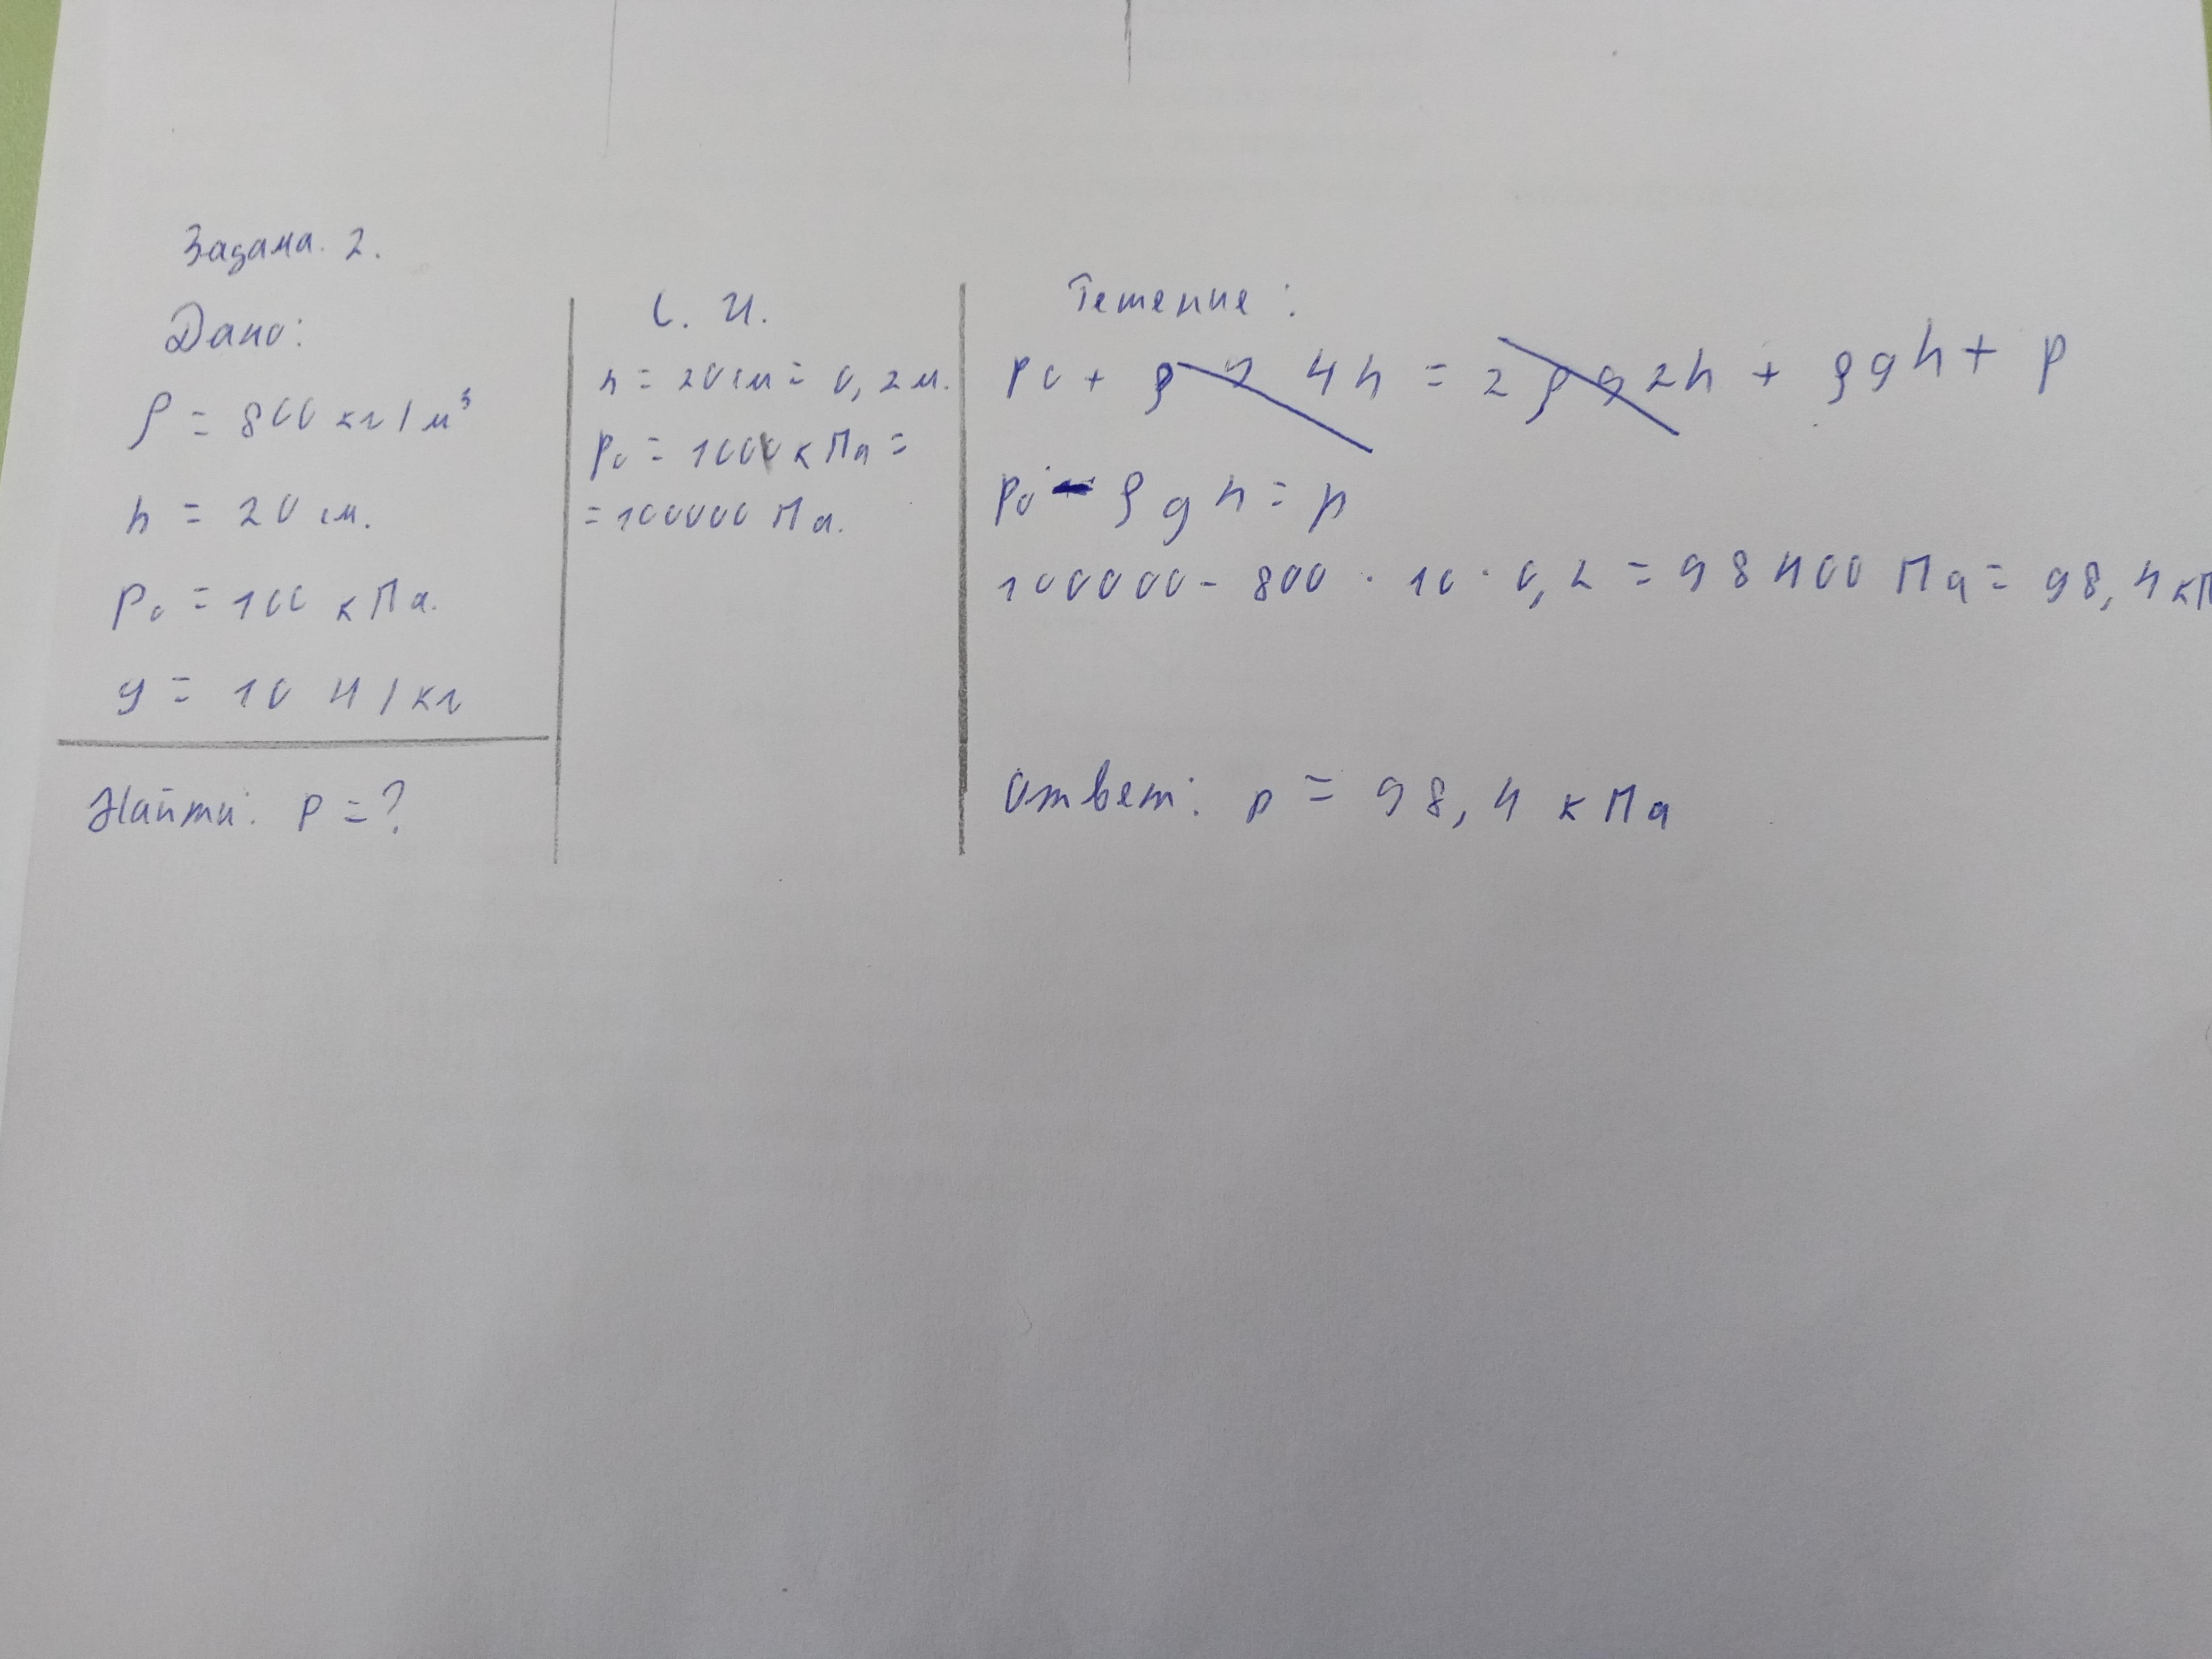 Задача. 2.
Дано:
ρ = 800 кг/м³
h = 20 см.
p₀ = 100 кПа.
g = 10 Н/кг
Найти: p = ?
С. И.
h = 20 см = 0,2 м.
p₀ = 100 кПа =
= 100000 Па.
Решение:
p₀ + ρ g 4h = 2 ρ g 2h + ρgh + p
p₀ - ρgh = p
100000 - 800 · 10 · 0,2 = 98400 Па = 98,4 кП
Ответ: p = 98,4 кПа